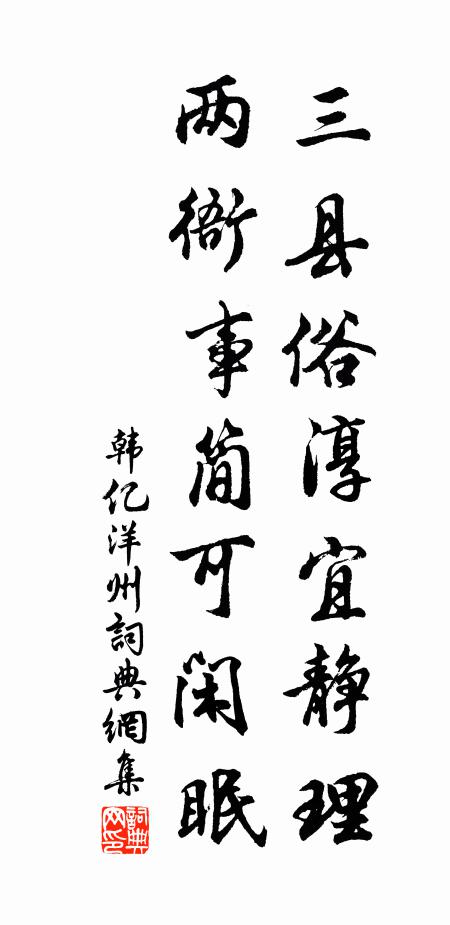 三县俗淳宜静理
两衙事简可闲眠
韩亿洋州詞典網集
詞典网印